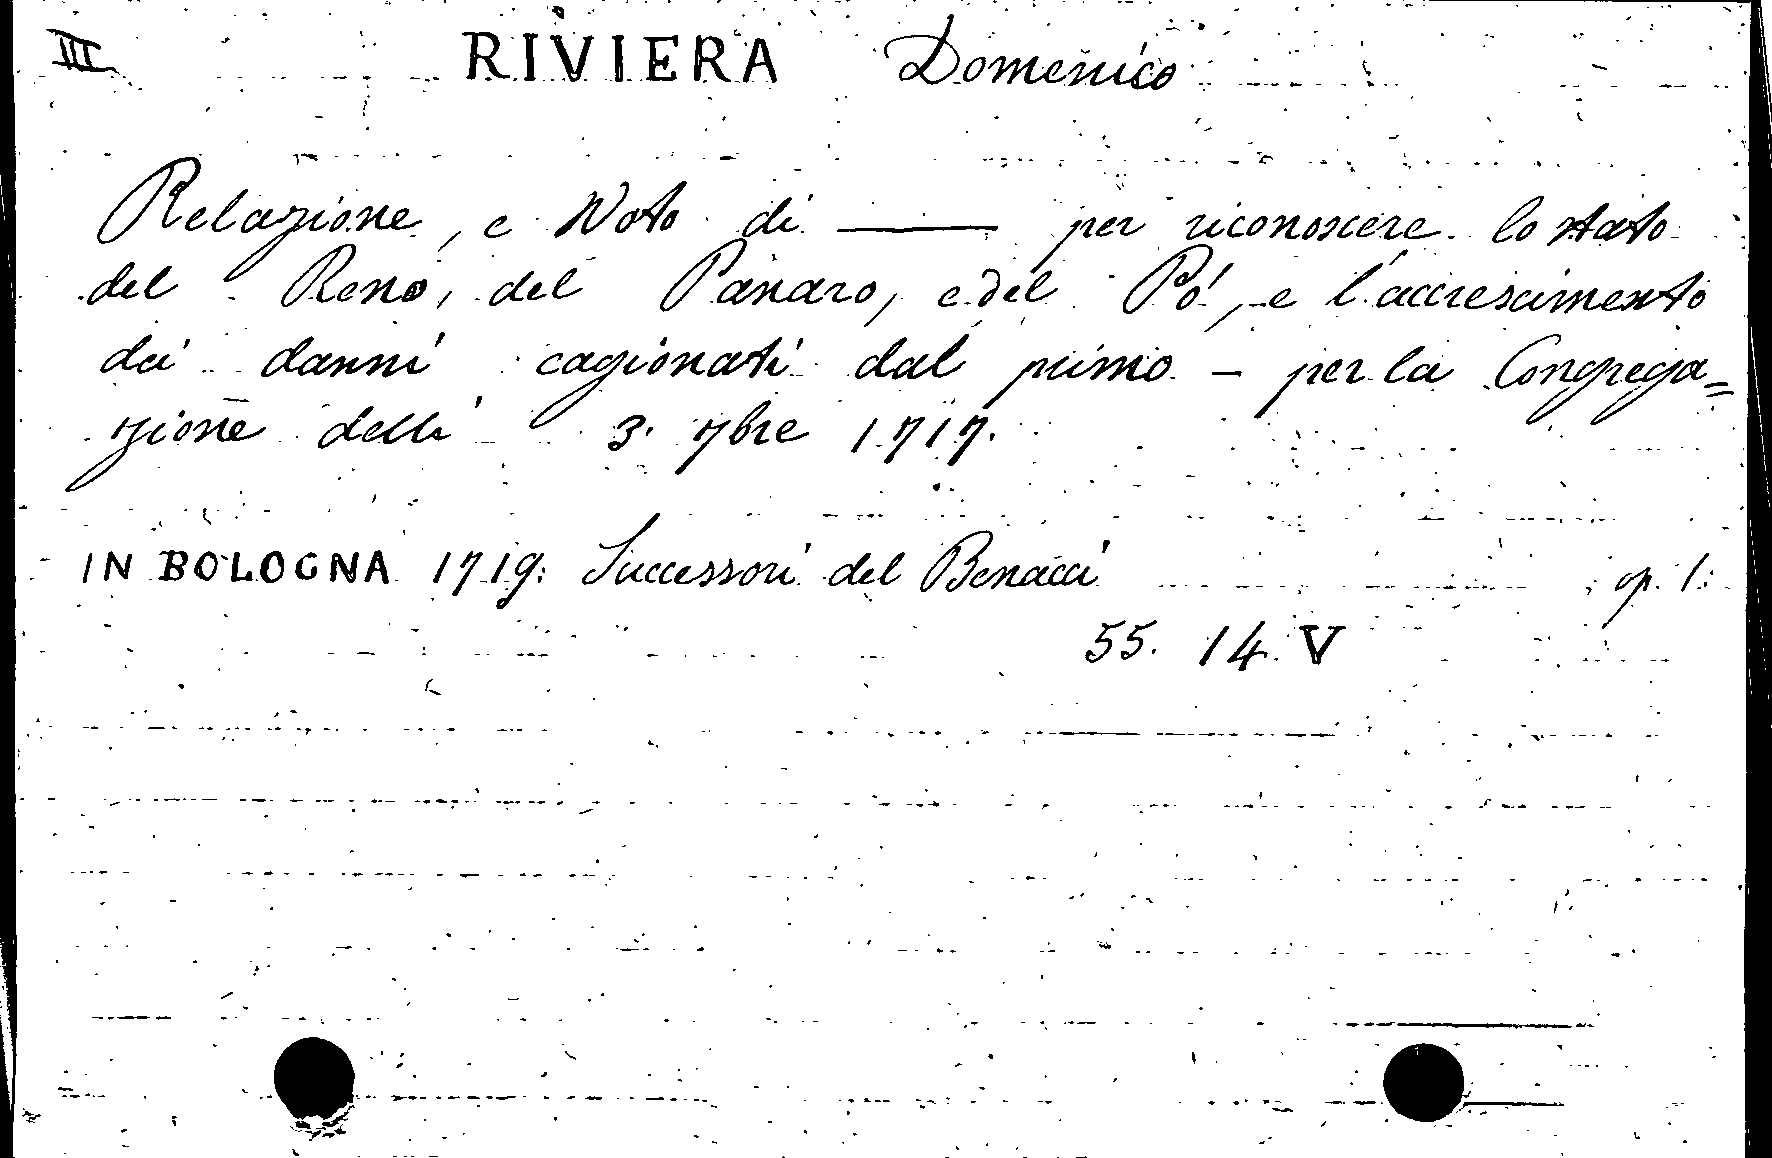 III RIVIERA Domenico
Relazione, e Voto di ——— per riconoscere lo stato
del Reno, del Panaro, e del Pó, e l'accrescimento
dei danni cagionati dal primo - per la Congrega=
zione delli 3. 7bre 1717.
IN BOLOGNA 1719: Successori del Benacci op. 1:
55. 14. V